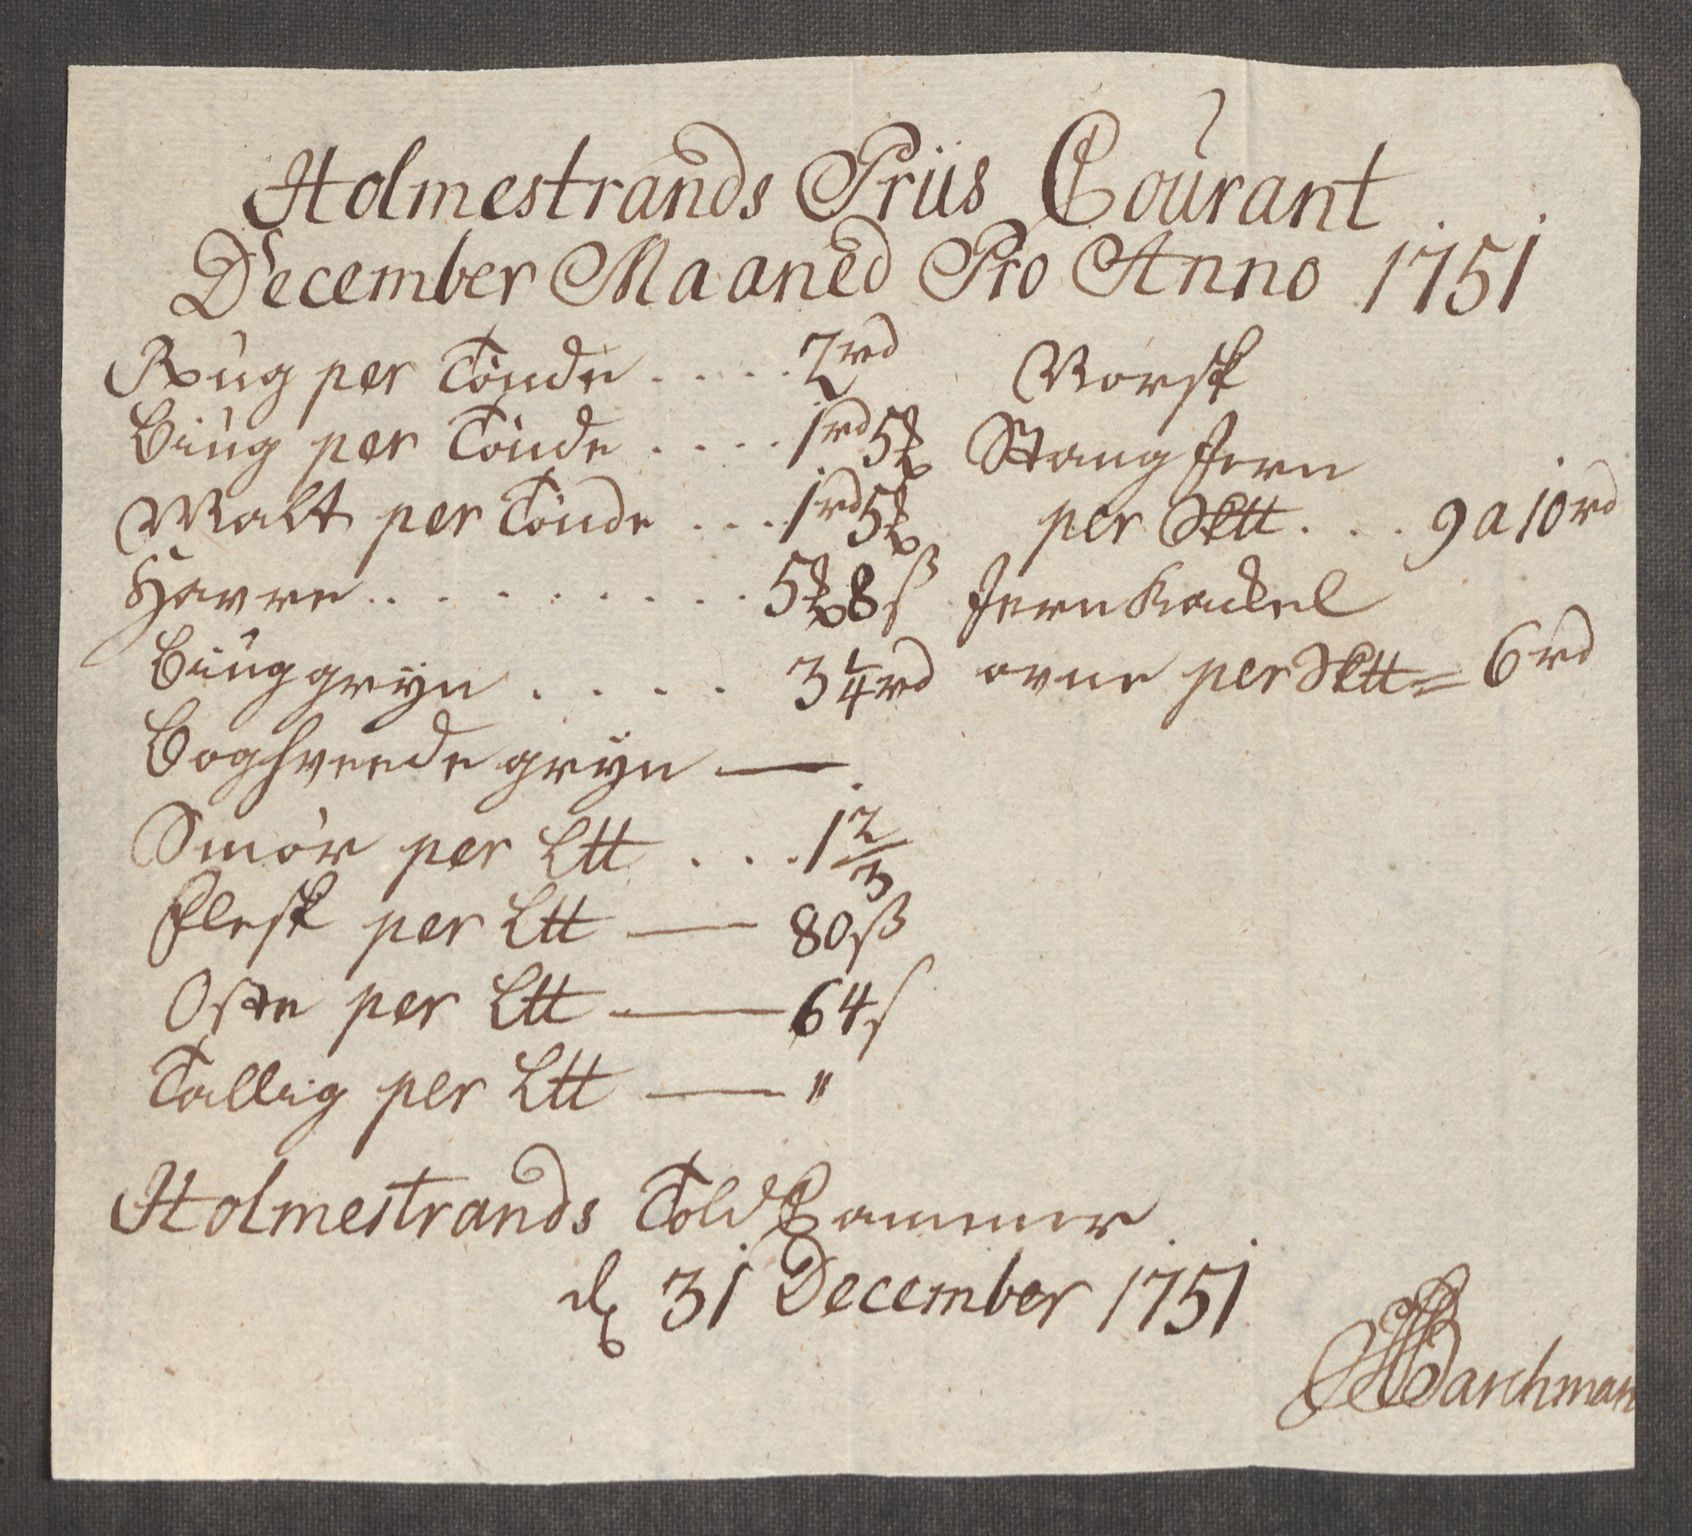 Holmestrands Priis Courant
December Maaned Pro Anno 1751
Rug per Tönde .... 2 rd
Biug per Tönde .... 1 rd 5
Malt per Tönde .... 1 rd 5
Havre .......... 5 8 ß
Biuggryn ..... 3 1/4 rd
Boghveedegryn —
Smör per Ltt .... 1 2/3
Flesk per Ltt — 80 ß
Oste per Ltt — 64 ß
Tallig per Ltt — "
Norsk
Stang Jern
per Sktt .... 9 a 10 rd
Jern Kackel
ovne per Sktt = 6 rd
Holmestrands Told Cammer
d 31 December 1751
Barchman